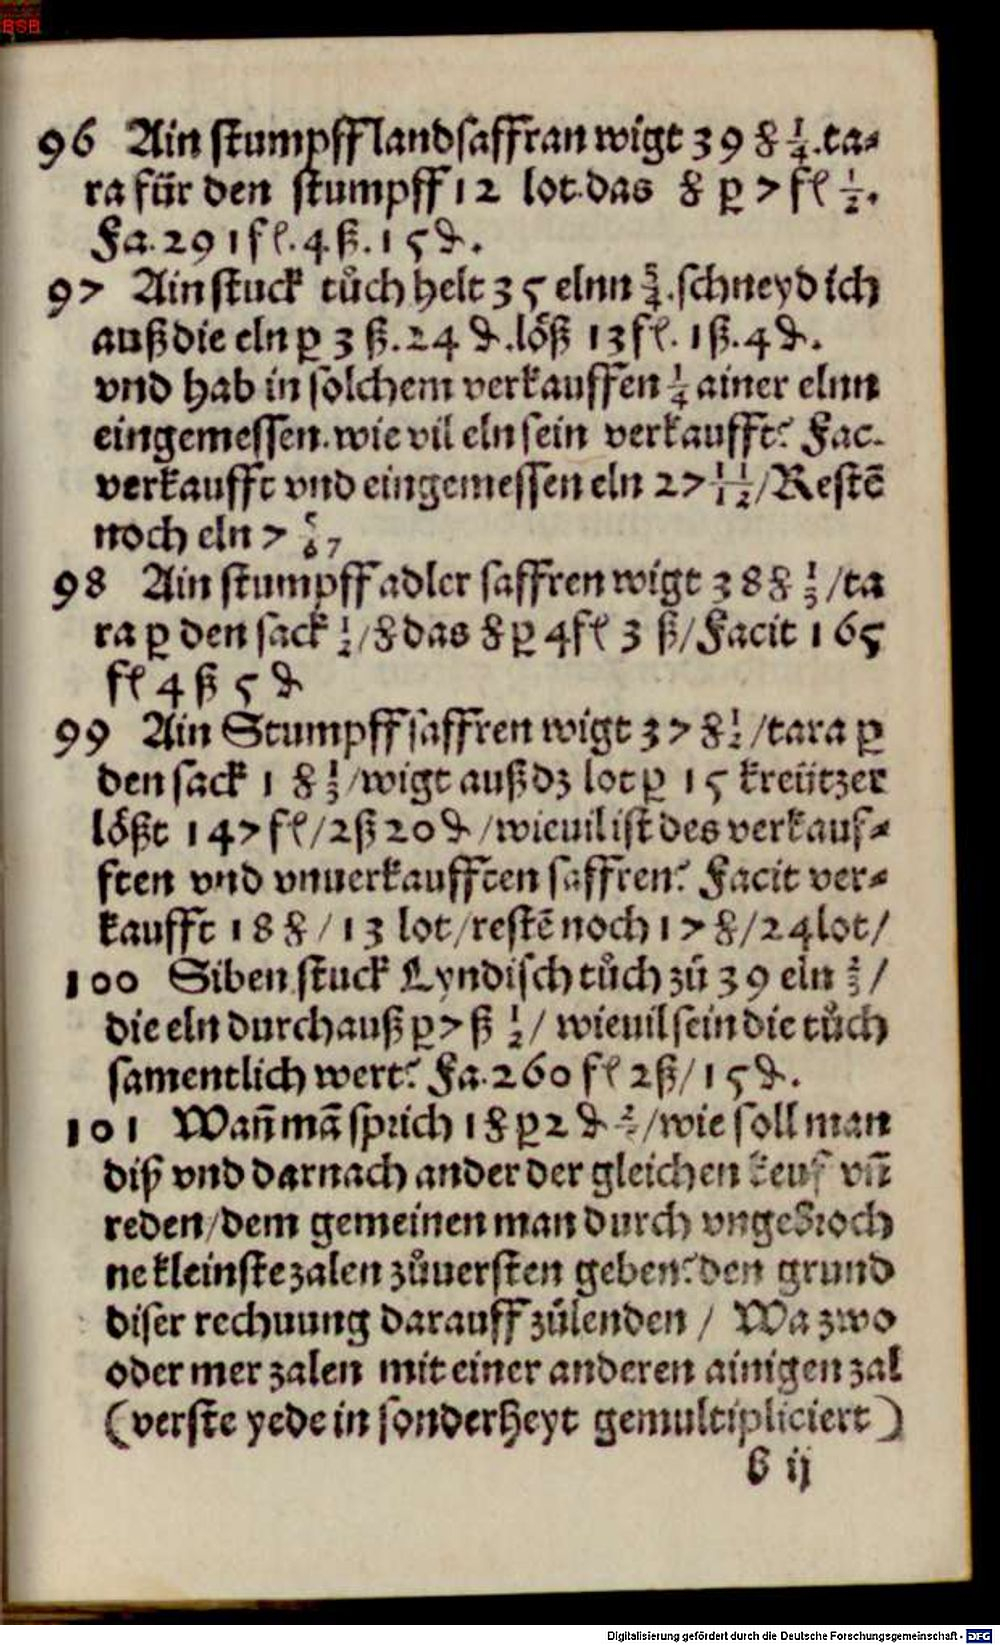 BSB
96 Ain stumpff landsaffran wigt 39 ℔ 1/4. ta-
ra für den stumpff 12 lot. das ℔ p 7 fl 1/2.
Fa. 291 fl. 4. ß. 15 ₰.
97 Ain stuck tůch helt 35 elnn 3/4. schneyd ich
auß die eln p 3 ß. 24 ₰. löß 13 fl. 1 ß. 4 ₰.
vnd hab in solchem verkauffen 1/4 ainer elnn
eingemessen. wie vil eln sein verkaufft? Fac.
verkaufft vnd eingemessen eln 27 11/12 / Restē
noch eln 7
98 Ain stumpff adler saffren wigt 38 ℔ 1/3 / ta
ra p den sack 1/2 / ℔ das ℔ p 4 fl 3 ß / Facit 165
fl 4 ß 5 ₰
99 Ain Stumpff saffren wigt 37 ℔ 1/2 / tara p
den sack 1 ℔ / wigt auß dz lot p 15 kreützer
lößt 147 fl / 2 ß 20 ₰ / wieuil ist des verkauf-
ften vnd vnuerkaufften saffren? Facit ver-
kaufft 18 ℔ / 13 lot / restē noch 17 ℔ / 24 lot /
100 Siben stuck Lyndisch tůch zů 39 eln 2/3 /
die eln durchauß p 7 ß 1/2 / wieuil sein die tůch
samentlich wert? Fa. 260 fl 2 ß / 15 ₰.
101 Wañ mā sprich 1 ℔ p 2 ₰ / wie soll man
diß vnd darnach ander der gleichen keuf vñ
reden / dem gemeinen man durch vngebroch
ne kleinste zalen zůuersten geben? den grund
diser rechnung darauff zůlenden / Wa zwo
oder mer zalen mit einer anderen ainigen zal
(verste yede in sonderheyt gemultipliciert)
G ij
Digitalisierung gefördert durch die Deutsche Forschungsgemeinschaft - DFG